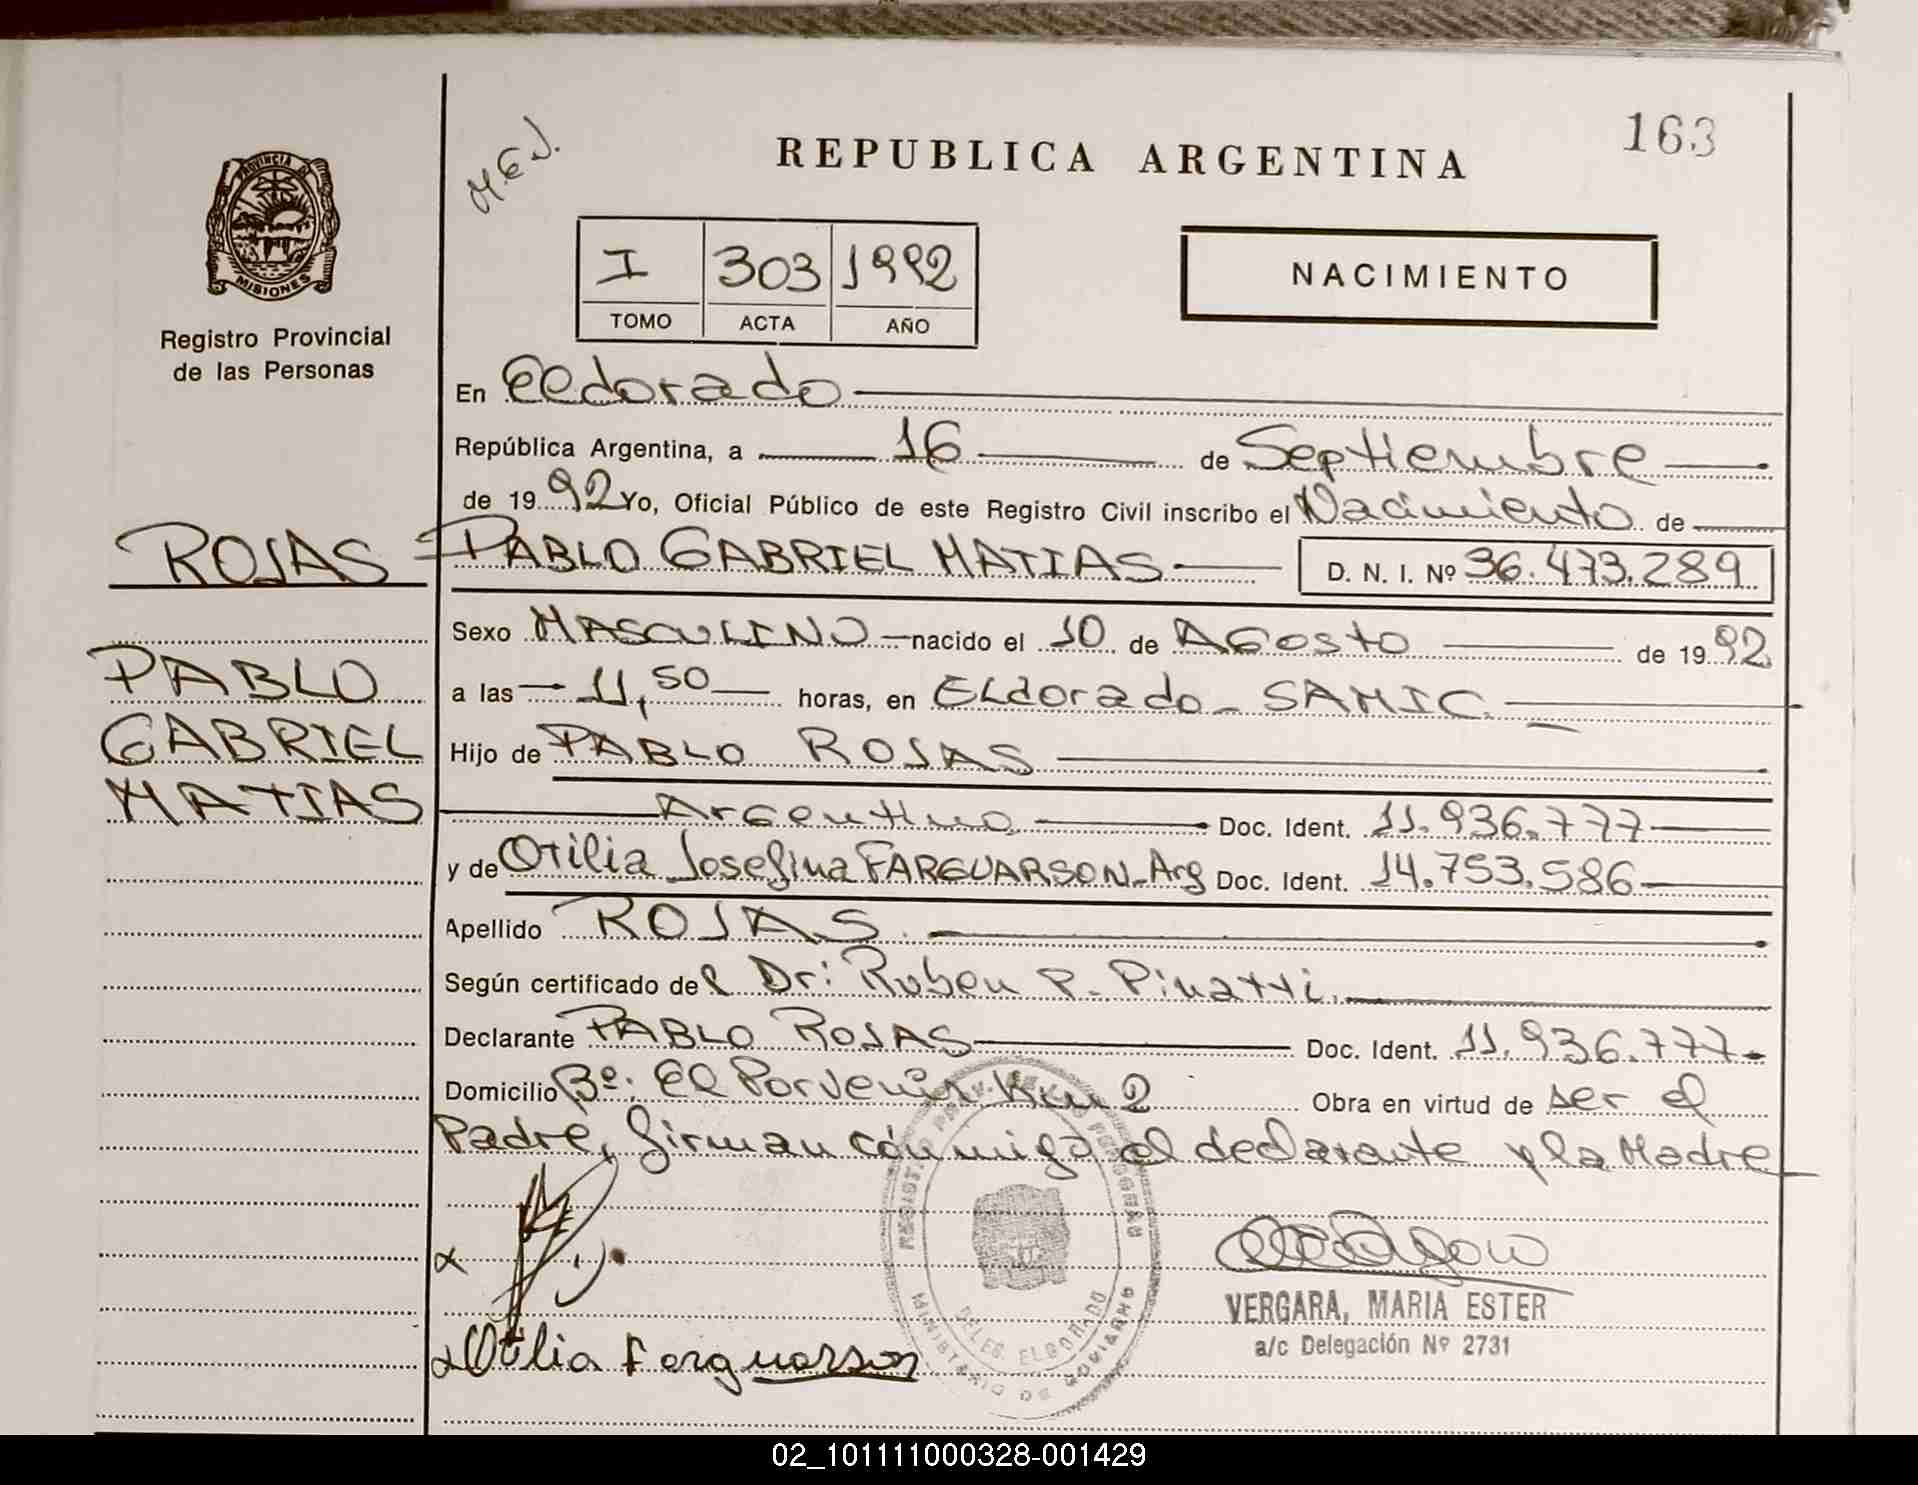 163
M.E.J.
REPUBLICA ARGENTINA
PROVINCIA DE
MISIONES
Registro Provincial
de las Personas
I 303 1992
TOMO ACTA AÑO
NACIMIENTO
En Eldorado
República Argentina, a 16 de Septiembre
de 1992 Yo, Oficial Público de este Registro Civil inscribo el Nacimiento de
ROJAS
PABLO GABRIEL MATIAS D. N. I. Nº 36.473.289
Sexo MASCULINO nacido el 10 de AGosto de 1992
PABLO
GABRIEL
MATIAS
a las 11,50 horas, en ELdorado - SAMIC.
Hijo de PABLO ROJAS
Argentino Doc. Ident. 11.936.777
y de Otilia Josefina FARGUARSON-Arg Doc. Ident. 14.753.586
Apellido ROJAS.
Según certificado del Dr: Ruben P. Pinatti.
Declarante PABLO ROJAS Doc. Ident. 11.936.777
Domicilio Bº: El Porvenir Km 2 Obra en virtud de ser el
Padre, firman conmigo el declarante y la Madre
Otilia Farguarson
VERGARA, MARIA ESTER
a/c Delegación Nº 2731
DELEG. ELDORADO
MINISTERIO DE GOBIERNO
02_101111000328-001429